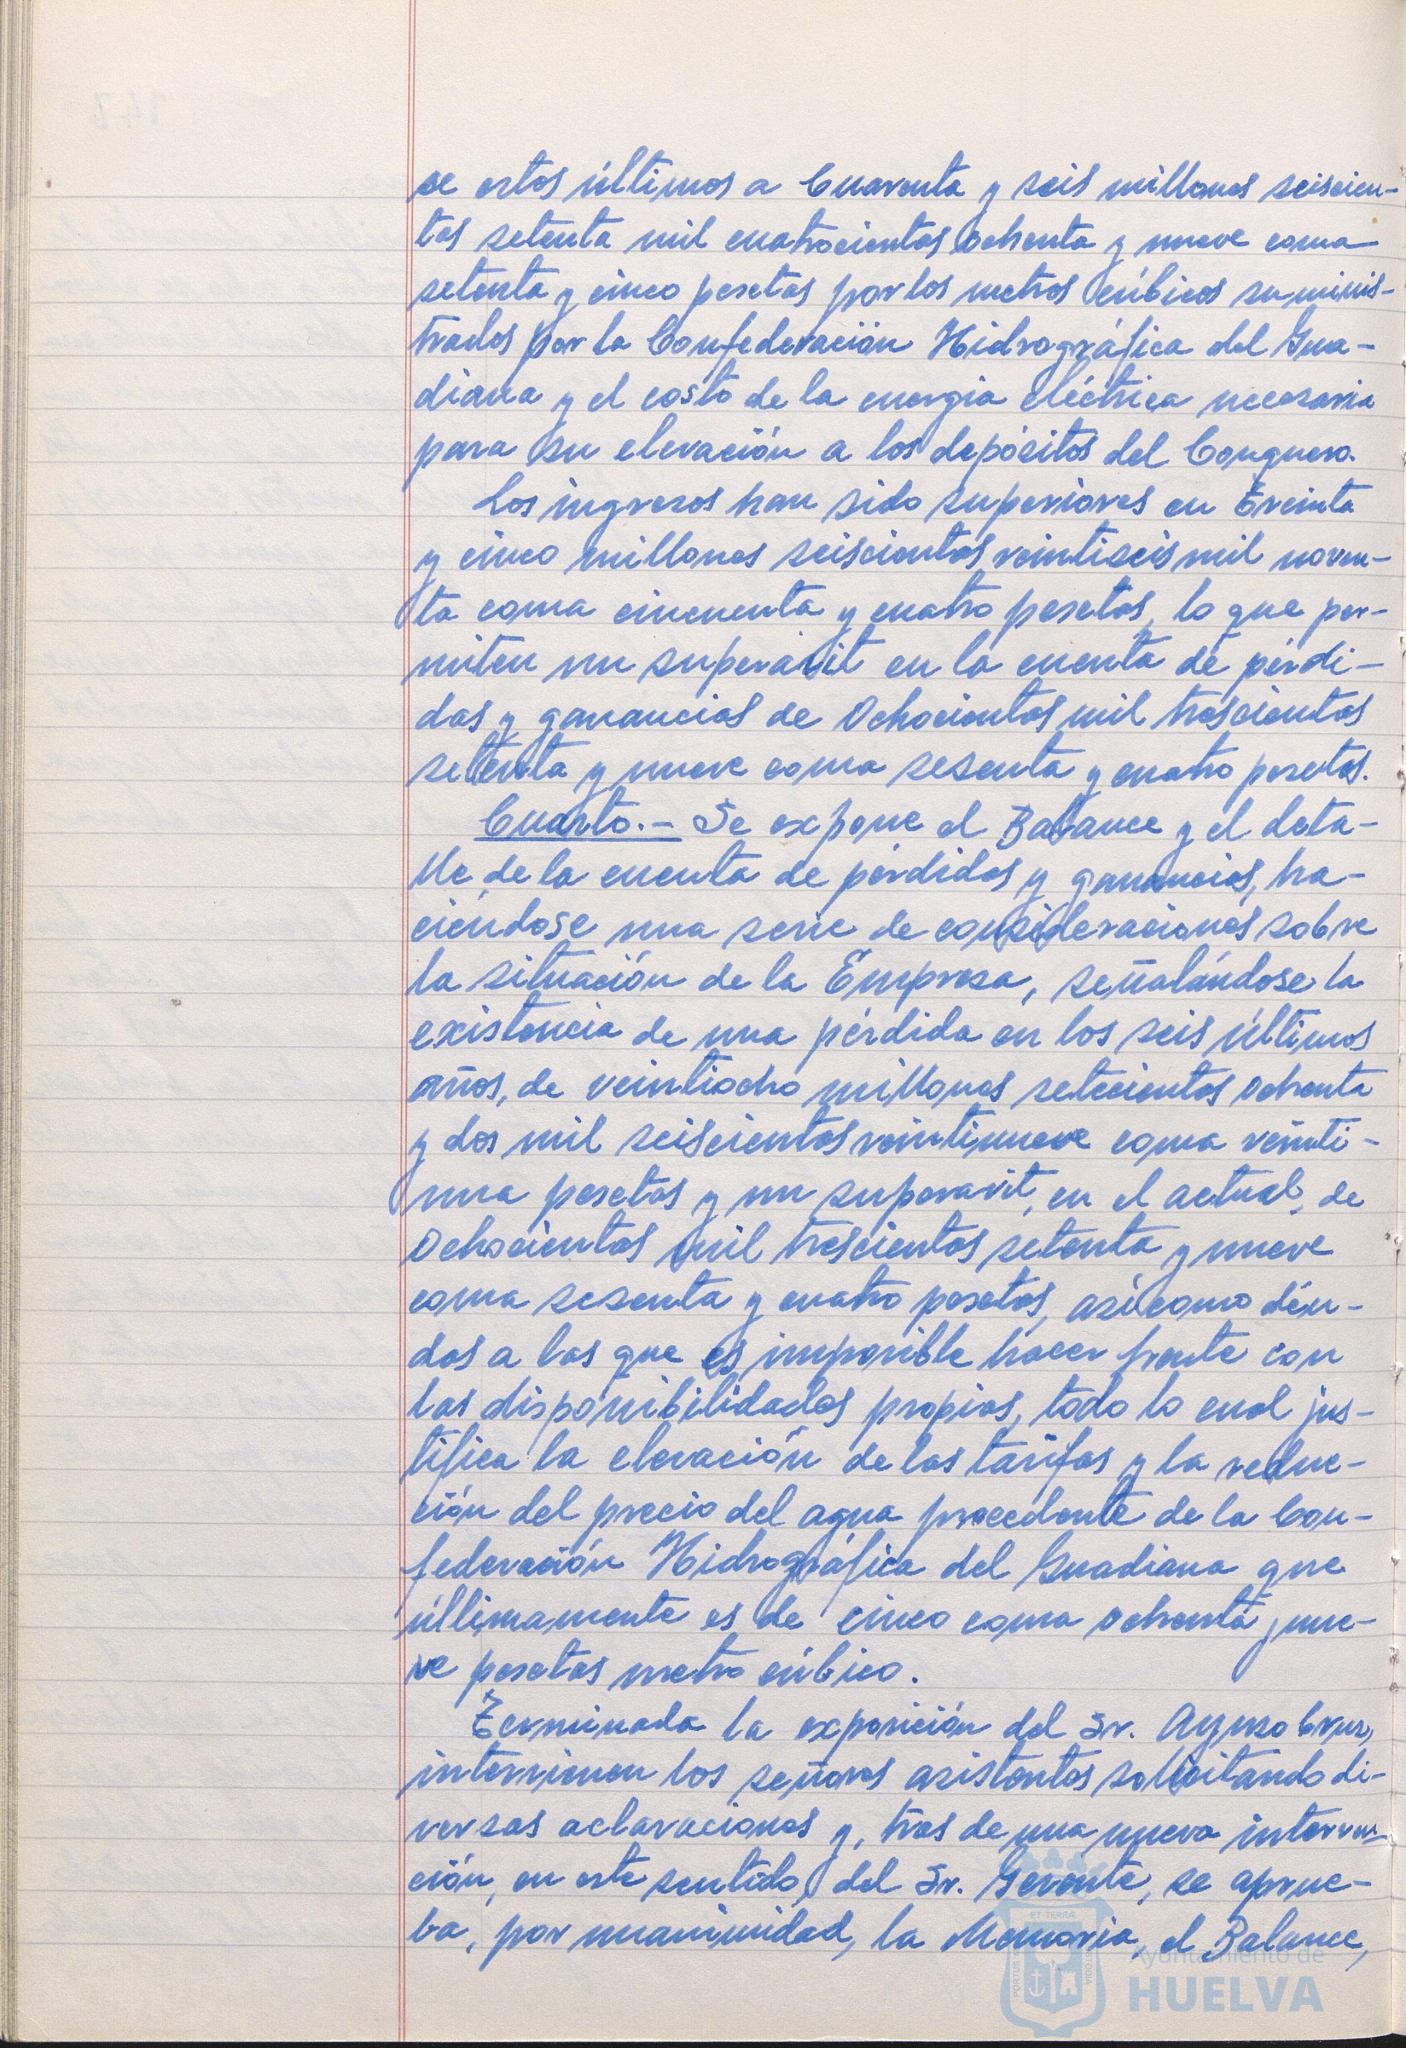 se estos últimos a Cuarenta y seis millones seiscien-
tas setenta mil cuatrocientas ochenta y nueve coma
setenta y cinco pesetas por los metros cúbicos suminis-
trados por la Confederación Hidrográfica del Gua-
diana y el costo de la energia eléctrica necesaria
para su elevación a los depósitos del Conquero.
Los ingresos han sido superiores en Treinta
y cinco millones seiscientas veintiseis mil noven-
ta coma cincuenta y cuatro pesetas, lo que per-
miten un superavit en la cuenta de pérdi-
das y ganancias de Ochocientas mil trescientas
setenta y nueve coma sesenta y cuatro pesetas.
Cuarto.- Se expone el Balance y el deta-
lle de la cuenta de pérdidas y ganancias, ha-
ciéndose una serie de consideraciones sobre
la situación de la Empresa, señalándose la
existencia de una pérdida en los seis últimos
años, de veintiocho millones setecientas ochenta
y dos mil seiscientas veintinueve coma veinti-
una pesetas y un superavit, en el actual, de
Ochocientas mil trescientas setenta y nueve
coma sesenta y cuatro pesetas, asi como deu-
das a las que es imposible hacer frente con
las disponibilidades propias, todo lo cual jus-
tifica la elevación de las tarifas y la reduc-
ción del precio del agua procedente de la Con-
federación Hidrográfica del Guadiana que
últimamente es de cinco coma ochenta y nue-
ve pesetas metro cúbico.
Terminada la exposición del Sr. Ayuso Cruz,
intervienen los señores asistentes solicitando di-
versas aclaraciones y, tras de una nueva interven-
ción, en este sentido, del Sr. Gerente, se aprue-
ba, por unanimidad, la Memoria, el Balance,
ET TERRAE
PORTUS
CUSTODIA
Ayuntamiento de
HUELVA